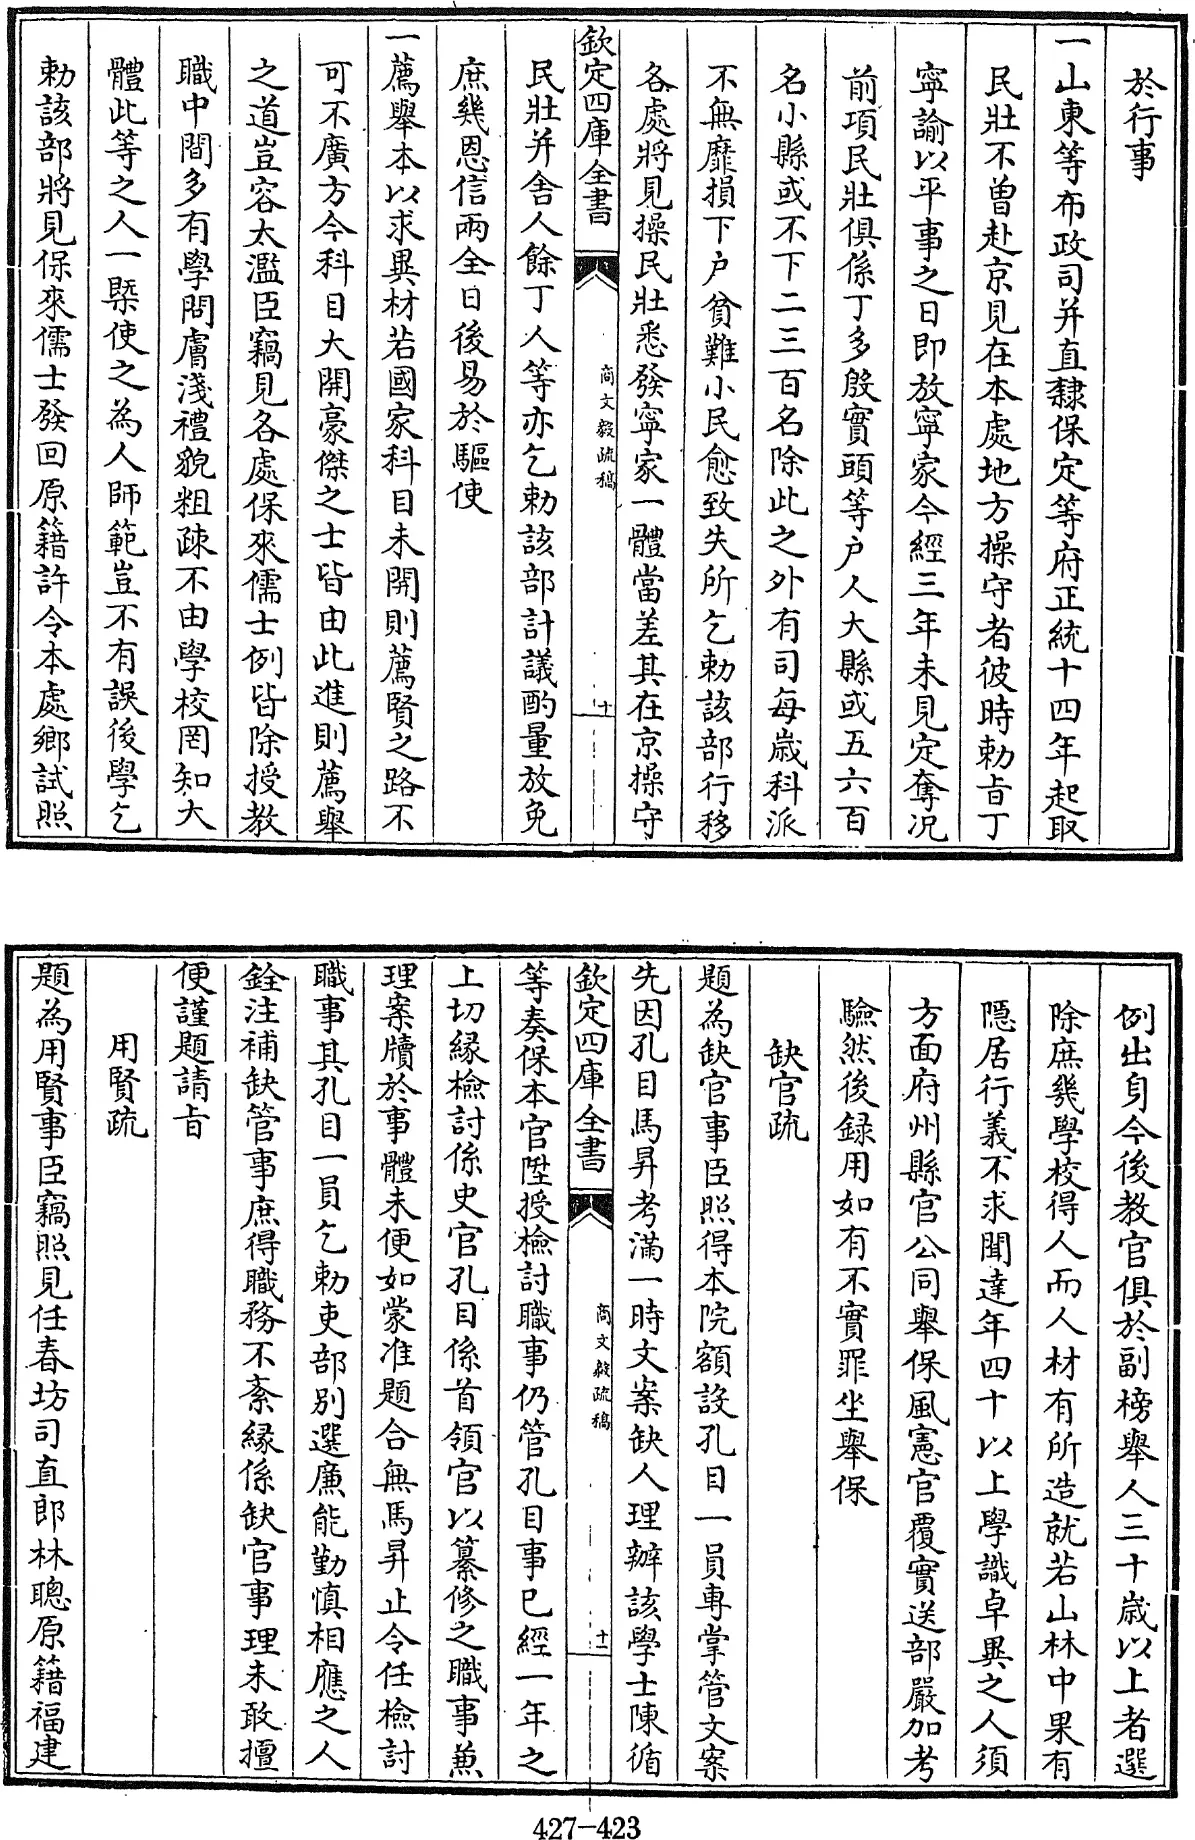 於行事
一山東等布政司并直隸保定等府正統十四年起取
民壯不曾赴京見在本處地方操守者彼時勅旨丁
寧諭以平事之日即放寧家今經三年未見定奪況
前項民壯俱係丁多殷實頭等户人大縣或五六百
名小縣或不下二三百名除此之外有司每歲科派
不無靡損下户貧難小民愈致失所乞勅該部行移
各處將見操民壯悉發寧家一體當差其在京操守
欽定四庫全書
商文毅疏稿
十
民壯并舍人餘丁人等亦乞勅該部計議酌量放免
庶幾恩信兩全日後易於驅使
一薦舉本以求異材若國家科目未開則薦賢之路不
可不廣方今科目大開豪傑之士皆由此進則薦舉
之道豈容太濫臣竊見各處保來儒士例皆除授教
職中間多有學問膚淺禮貌粗疎不由學校罔知大
體此等之人一槩使之為人師範豈不有誤後學乞
勅該部將見保來儒士發回原籍許令本處鄉試照
例出身今後教官俱於副榜舉人三十歲以上者選
除庶幾學校得人而人材有所造就若山林中果有
隱居行義不求聞達年四十以上學識卓異之人須
方面府州縣官公同舉保風憲官覆實送部嚴加考
驗然後録用如有不實罪坐舉保
缺官疏
題為缺官事臣照得本院額設孔目一員專掌管文案
先因孔目馬昇考滿一時文案缺人理辦該學士陳循
欽定四庫全書
商文毅疏稿
十一
等奏保本官陞授檢討職事仍管孔目事已經一年之
上切緣檢討係史官孔目係首領官以纂修之職事兼
理案牘於事體未便如蒙准題合無馬昇止令任檢討
職事其孔目一員乞勅吏部別選廉能勤慎相應之人
銓注補缺管事庶得職務不紊緣係缺官事理未敢擅
便謹題請旨
用賢疏
題為用賢事臣竊照見任春坊司直郎林聰原籍福建
427-423